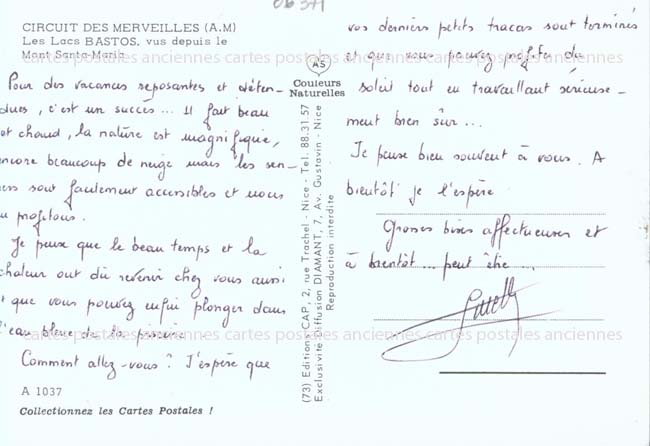 06 371
CIRCUIT DES MERVEILLES (A.M)
Les Lacs BASTOS, vus depuis le
Mont Santa-Maria
Pour des vacances reposantes et déten-
dues, c'est un succès... Il fait beau
et chaud, la nature est magnifique,
encore beaucoup de neige mais les sen-
iers sont facilement accessibles et nous
en profitons.
Je pense que le beau temps et la
chaleur ont dû revenir chez vous aussi
et que vous pouvez enfin plonger dans
l'eau bleue de la piscine
Comment allez-vous ? J'espère que
A 1037
Collectionnez les Cartes Postales !
AS
Couleurs
Naturelles
(73) Editions CAP, 2, rue Trachel - Nice - Tel. 88.31.57
Exclusivité Diffusion DIAMANT, 7, Av. Gustavin - Nice
Reproduction interdite
vos derniers petits tracas sont terminés
et que vous pouvez profiter du
soleil tout en travaillant sérieuse-
ment bien sûr...
Je pense bien souvent à vous. A
bientôt je l'espère
Grosses bises affectueuses et
à bientôt... peut être...
cartes postales anciennes cartes postales anciennes cartes postales anciennes
cartes postales anciennes cartes postales anciennes cartes postales anciennes